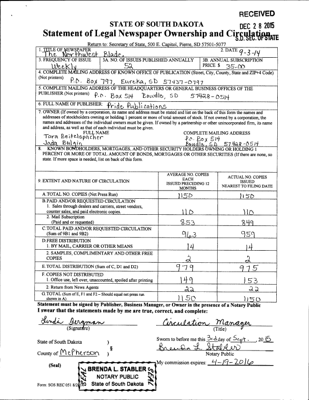 RECEIVED
DEC 28 2015
S.D. SEC. OF STATE
STATE OF SOUTH DAKOTA
Statement of Legal Newspaper Ownership and Circulation
Return to: Secretary of State, 500 E. Capitol, Pierre, SD 57501-5077
1. TITLE OF NEWSPAPER
The Northwest Blade
2. DATE 9-3-14
3. FREQUENCY OF ISSUE
Weekly
3A. NO. OF ISSUES PUBLISHED ANNUALLY
52
3B. ANNUAL SUBSCRIPTION
PRICE $ 35.00
4. COMPLETE MAILING ADDRESS OF KNOWN OFFICE OF PUBLICATION (Street, City, County, State and ZIP+4 Code)
(Not printers) P.O. Box 797, Eureka, SD 57437-0797
5. COMPLETE MAILING ADDRESS OF THE HEADQUARTERS OR GENERAL BUSINESS OFFICES OF THE
PUBLISHERS (Not printers) P.O. Box 514 Bowdle, SD 57428-0514
6. FULL NAME OF PUBLISHER: Pride Publications
7. OWNER (If owned by a corporation, its name and address must be stated and list on the back of this form the names and
addresses of stockholders owning or holding 1 percent or more of total amount of stock. If not owned by a corporation, the
names and addresses of the individual owners must be given. If owned by a partnership or other unincorporated firm, its name
and address, as well as that of each individual must be given.
FULL NAME
COMPLETE MAILING ADDRESS
Tara Beitelspacher
PO Box 514
Bowdle, SD 57428-0514
8. KNOWN BONDHOLDERS, MORTGAGEES, AND OTHER SECURITY HOLDERS OWNING OR HOLDING 1
PERCENT OR MORE OF TOTAL AMOUNT OF BONDS, MORTGAGES OR OTHER SECURITIES (If there are none, so
state. If more space is needed, list on back of this form.
9. EXTENT AND NATURE OF CIRCULATION
AVERAGE NO. COPIES
EACH
ISSUED PRECEDING 12
MONTHS
ACTUAL NO. COPIES
ISSUED
NEAREST TO FILING DATE
A. TOTAL NO. COPIES (Net Press Run) 1150 1150
B. PAID AND/OR REQUESTED CIRCULATION
1. Sales through dealers and carriers, street vendors,
counter sales, and paid electronic copies 110 110
2. Mail Subscription
(Paid and or requested) 853 849
C. TOTAL PAID AND/OR REQUESTED CIRCULATION
(Sum of 9B1 and 9B2) 963 959
D. FREE DISTRIBUTION
1. BY MAIL, CARRIER OR OTHER MEANS 14 14
2. SAMPLES, COMPLIMENTARY AND OTHER FREE
COPIES 2 2
E. TOTAL DISTRIBUTION (Sum of C, D1 and D2) 979 975
F. COPIES NOT DISTRIBUTED
1. Office use, left over, unaccounted, spoiled after printing 149 153
2. Return from News Agents 22 22
G. TOTAL (Sum of E, F1 and F2 - Should equal net press run
shown in A) 1150 1150
Statement must be signed by Publisher, Business Manager, or Owner in the presence of a Notary Public
I swear that the statements made by me are true, correct, and complete:
Bergman Circulation Manager
(Signature) (Title)
State of South Dakota )
County of McPherson )
Sworn to before me this 3rd day of Sept., 2015
Brenda L. Stabler
Notary Public
(Seal)
My commission expires: 4-19-2016
BRENDA L. STABLER
NOTARY PUBLIC
State of South Dakota